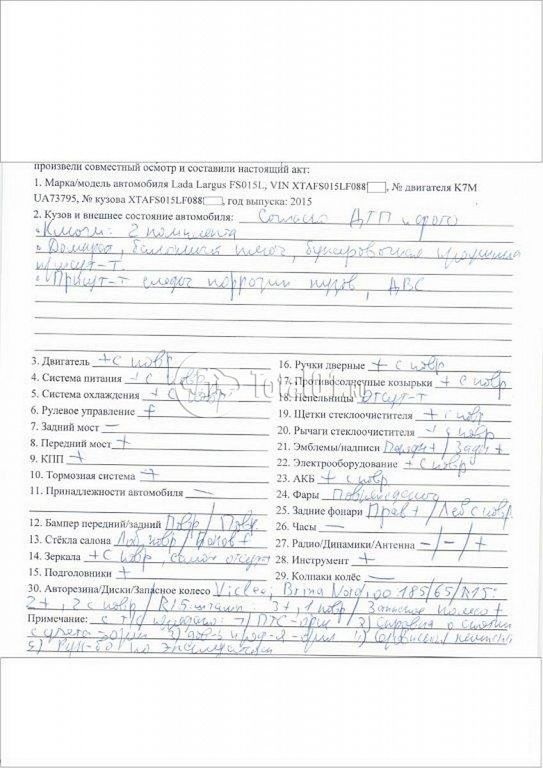 произвели совместный осмотр и составили настоящий акт:
1. Марка/модель автомобиля Lada Largus FS015L, VIN XTAFS015LF088, № двигателя K7M
UA73795, № кузова XTAFS015LF088, год выпуска: 2015
2. Кузов и внешнее состояние автомобиля: Согласно ДТП и фото
• Ключи: 2 комплекта
• Домкрат, балонный ключ, буксировочная проушина
присут-т.
• Присут-т следы коррозии кузов, ДВС
3. Двигатель + с повр
4. Система питания + с повр
5. Система охлаждения + с повр
6. Рулевое управление +
7. Задний мост —
8. Передний мост +
9. КПП +
10. Тормозная система +
11. Принадлежности автомобиля —
12. Бампер передний/задний Повр / Повр
13. Стёкла салона Лоб повр /
14. Зеркала + с повр, салон отсут-т
15. Подголовники +
16. Ручки дверные + с повр
17. Противосолнечные козырьки + с повр
18. Пепельницы Отсут-т
19. Щетки стеклоочистителя + с повр
20. Рычаги стеклоочистителя + с повр
21. Эмблемы/надписи / Задн +
22. Электрооборудование + с повр
23. АКБ + с повр
24. Фары
25. Задние фонари Прав + / Лев с повр
26. Часы —
27. Радио/Динамики/Антенна — / — / +
28. Инструмент +
29. Колпаки колёс —
30. Авторезина/Диски/Запасное колесо 185/65/R15:
2 +, 2 с повр / R15 штамп: 3 +, 1 повр / Запасное колесо +
Примечание: с т/с 1) ПТС-ориг 2) Справка о снятии
с учета 4) Сервисная
5) Рук-во по эксплуатации